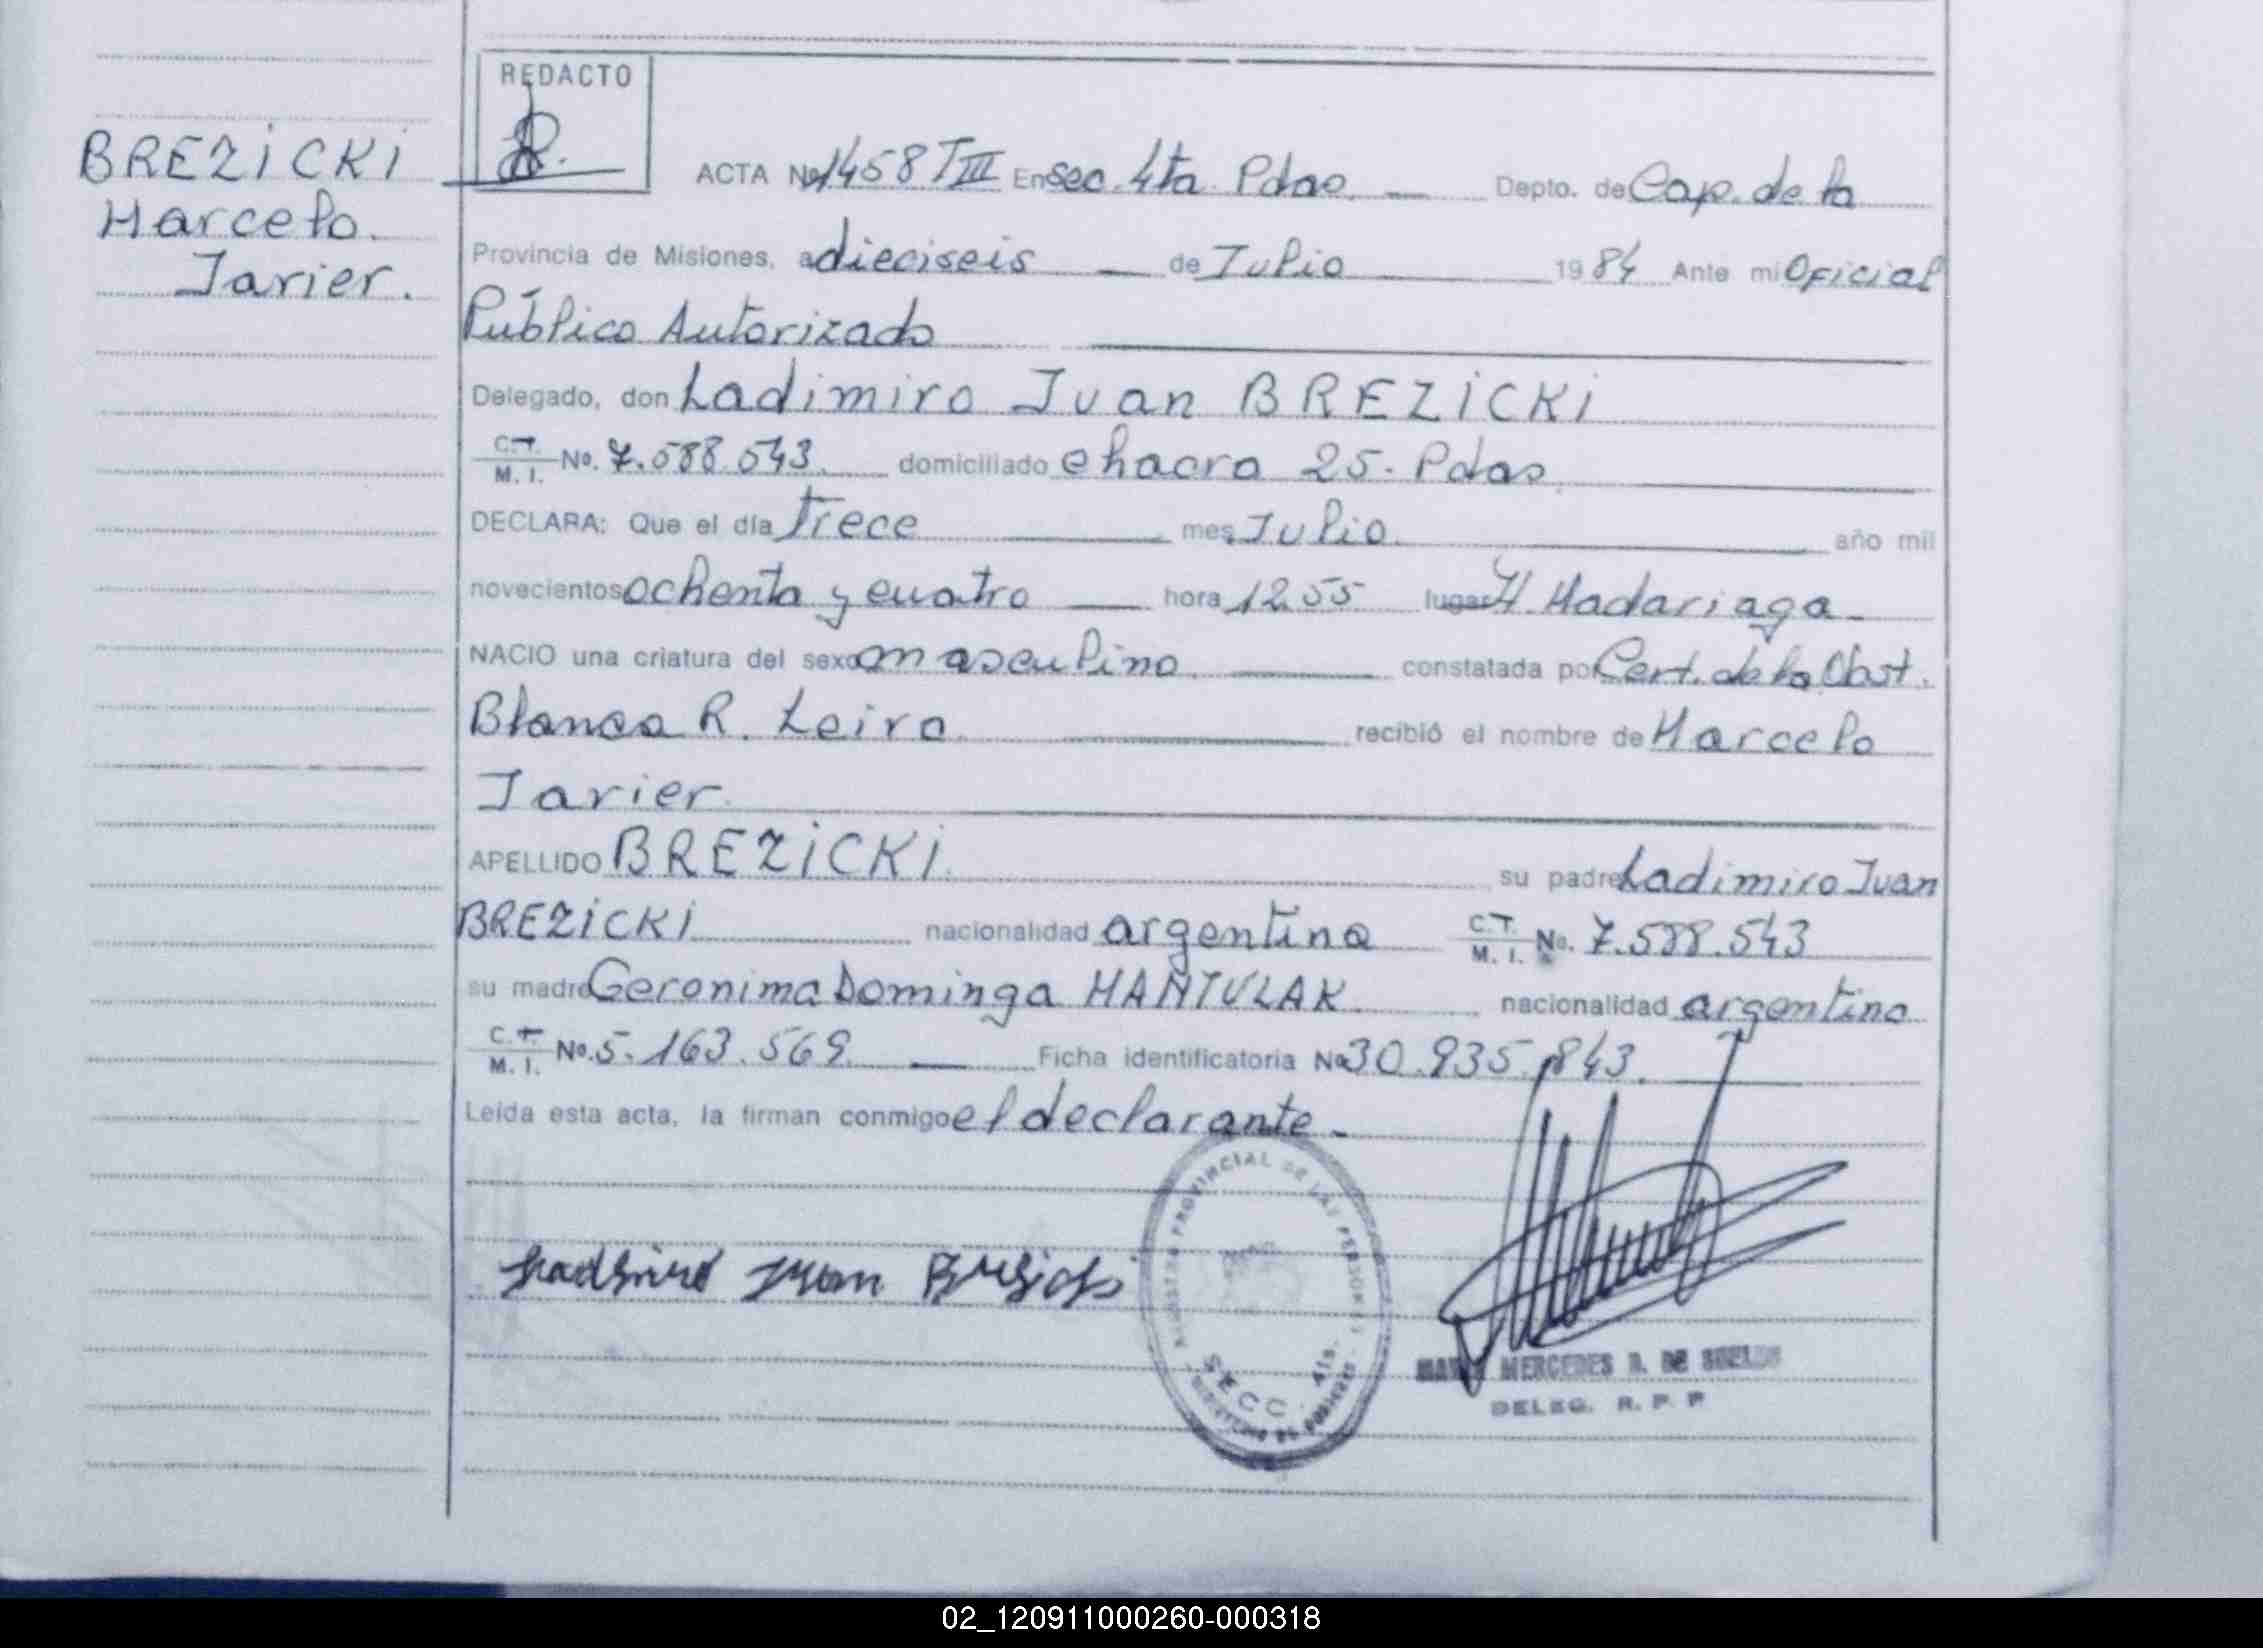 REDACTO
BREZICKI
Marcelo
Javier.
ACTA No 1458 T III En sec. 4ta. Pdas. Depto. de Cap. de la
Provincia de Misiones, a dieciseis de Julio 1984 Ante mi Oficial
Público Autorizado
Delegado, don Ladimiro Juan BREZICKI
C.T. M. I. No. 7.588.543. domiciliado chacra 25. Pdas.
DECLARA: Que el día trece mes Julio año mil
novecientos ochenta y cuatro hora 12.55 lugar H. Madariaga
NACIO una criatura del sexo masculino. constatada por Cert. de la Obst.
Blanca R. Leiro recibió el nombre de Marcelo
Javier.
APELLIDO BREZICKI. su padre Ladimiro Juan
BREZICKI nacionalidad argentina C.T. M. I. No. 7.588.543
su madre Geronima Dominga MANTULAK nacionalidad argentina
C.T. M. I. No. 5.163.569. Ficha identificatoria No 30.935.843.
Leída esta acta, la firman conmigo el declarante.
Ladimiro Juan Brezicki
REGISTRO PROVINCIAL DE LAS PERSONAS
SECC. 4ta.
MERCEDES
DELEG. R. P. P
02_120911000260-000318